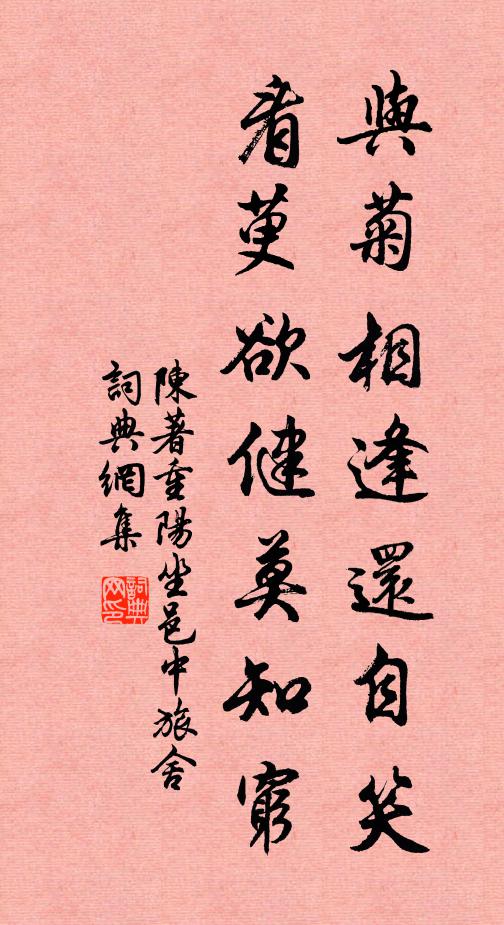 與菊相逢還自笑
看更欲健莫知窮
陳著重陽坐邑中旅舍
詞典網集
詞典網印